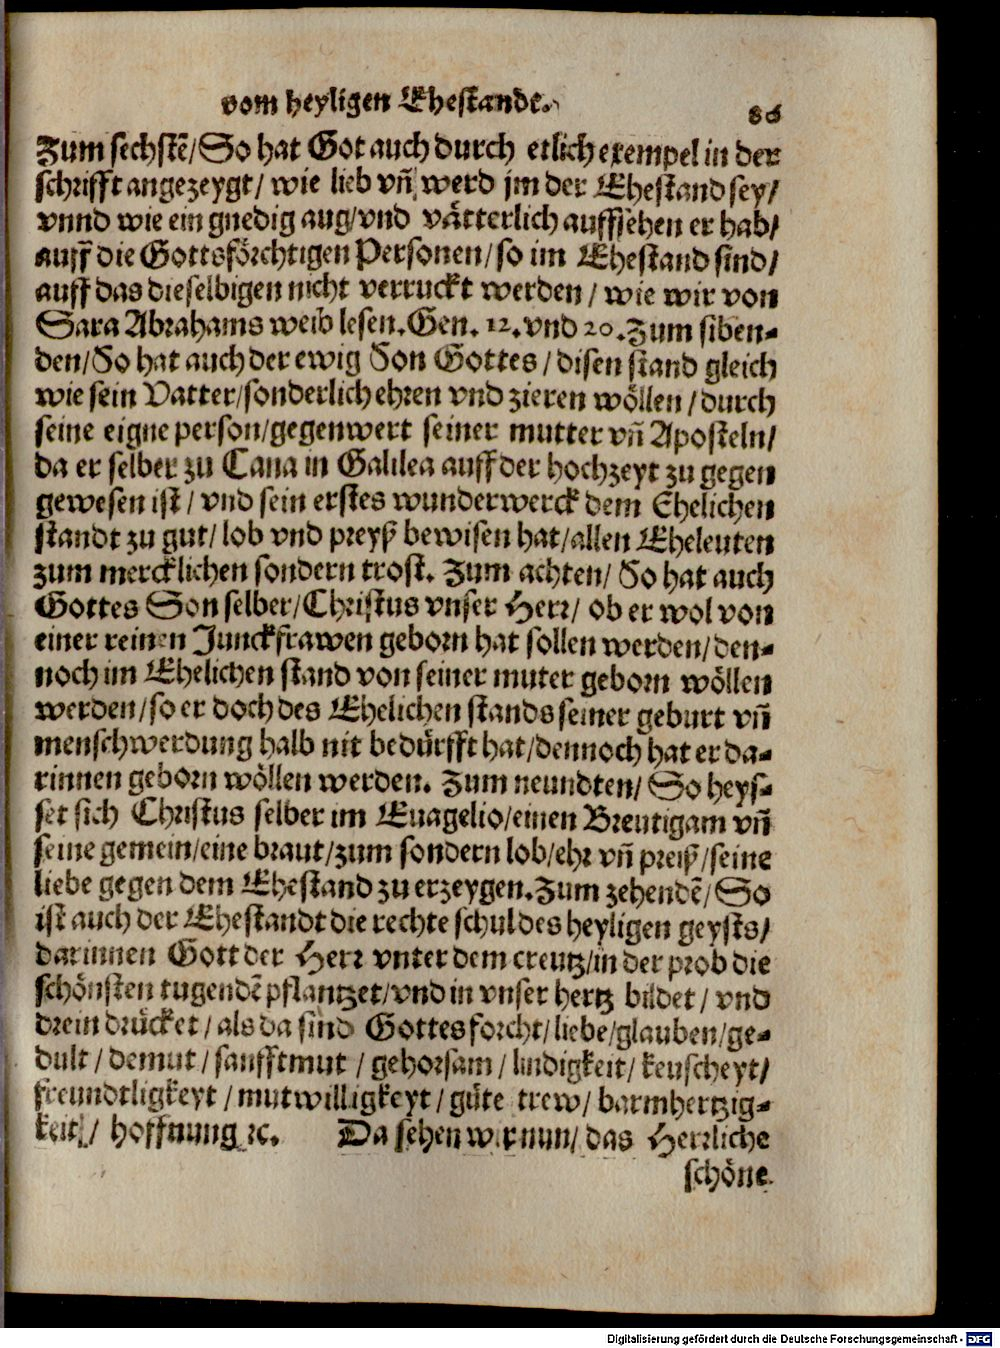 vom heyligen Ehestande.
86
Zum sechstẽ/ So hat Got auch durch etlich exempel in der
schrifft angezeygt/ wie lieb vñ werd jm der Ehestand sey/
vnnd wie ein gnedig aug/ vnd vätterlich auffsehen er hab/
auff die Gottsförchtigen Personen/ so im Ehestand sind/
auff das dieselbigen nicht verruckt werden/ wie wir von
Sara Abrahams weib lesen. Gen. 12. vnd 20. Zum siben-
den/ So hat auch der ewig Son Gottes/ disen stand gleich
wie sein Vatter/ sonderlich ehren vnd zieren wöllen/ durch
seine eigne person/ gegenwert seiner mutter vñ Aposteln/
da er selber zu Cana in Galilea auff der hochzeyt zu gegen
gewesen ist/ vnd sein erstes wunderwerck dem Ehelichen
standt zu gut/ lob vnd preyß bewisen hat/ allen Eheleuten
zum mercklichen sondern trost. Zum achten/ So hat auch
Gottes Son selber/ Christus vnser Herr/ ob er wol von
einer reinen Junckfrawen geborn hat sollen werden/ den-
noch im Ehelichen stand von seiner muter geborn wöllen
werden/ so er doch des Ehelichen stands seiner geburt vñ
menschwerdung halb nit bedürfft hat/ dennoch hat er da-
rinnen geborn wöllen werden. Zum neundten/ So heys-
set sich Christus selber im Euagelio/ einen Breutigam vñ
seine gemein/ eine braut/ zum sondern lob/ ehr vñ preiß/ seine
liebe gegen dem Ehestand zu erzeygen. Zum zehendẽ/ So
ist auch der Ehestandt die rechte schul des heyligen geysts/
darinnen Gott der Herr vnter dem creutz/ in der prob die
schönsten tugendẽ pflantzet/ vnd in vnser hertz bildet/ vnd
drein drücket/ als da sind Gottes forcht/ liebe/ glauben/ ge-
dult/ demut/ sanfftmut/ gehorsam/ lindigkeit/ keuscheyt/
freundtligkeyt/ mutwilligkeyt/ güte trew/ barmhertzig-
keit/ hoffnung ꝛc. Da sehen wir nun/ das Herrliche
schöne
Digitalisierung gefördert durch die Deutsche Forschungsgemeinschaft - DFG